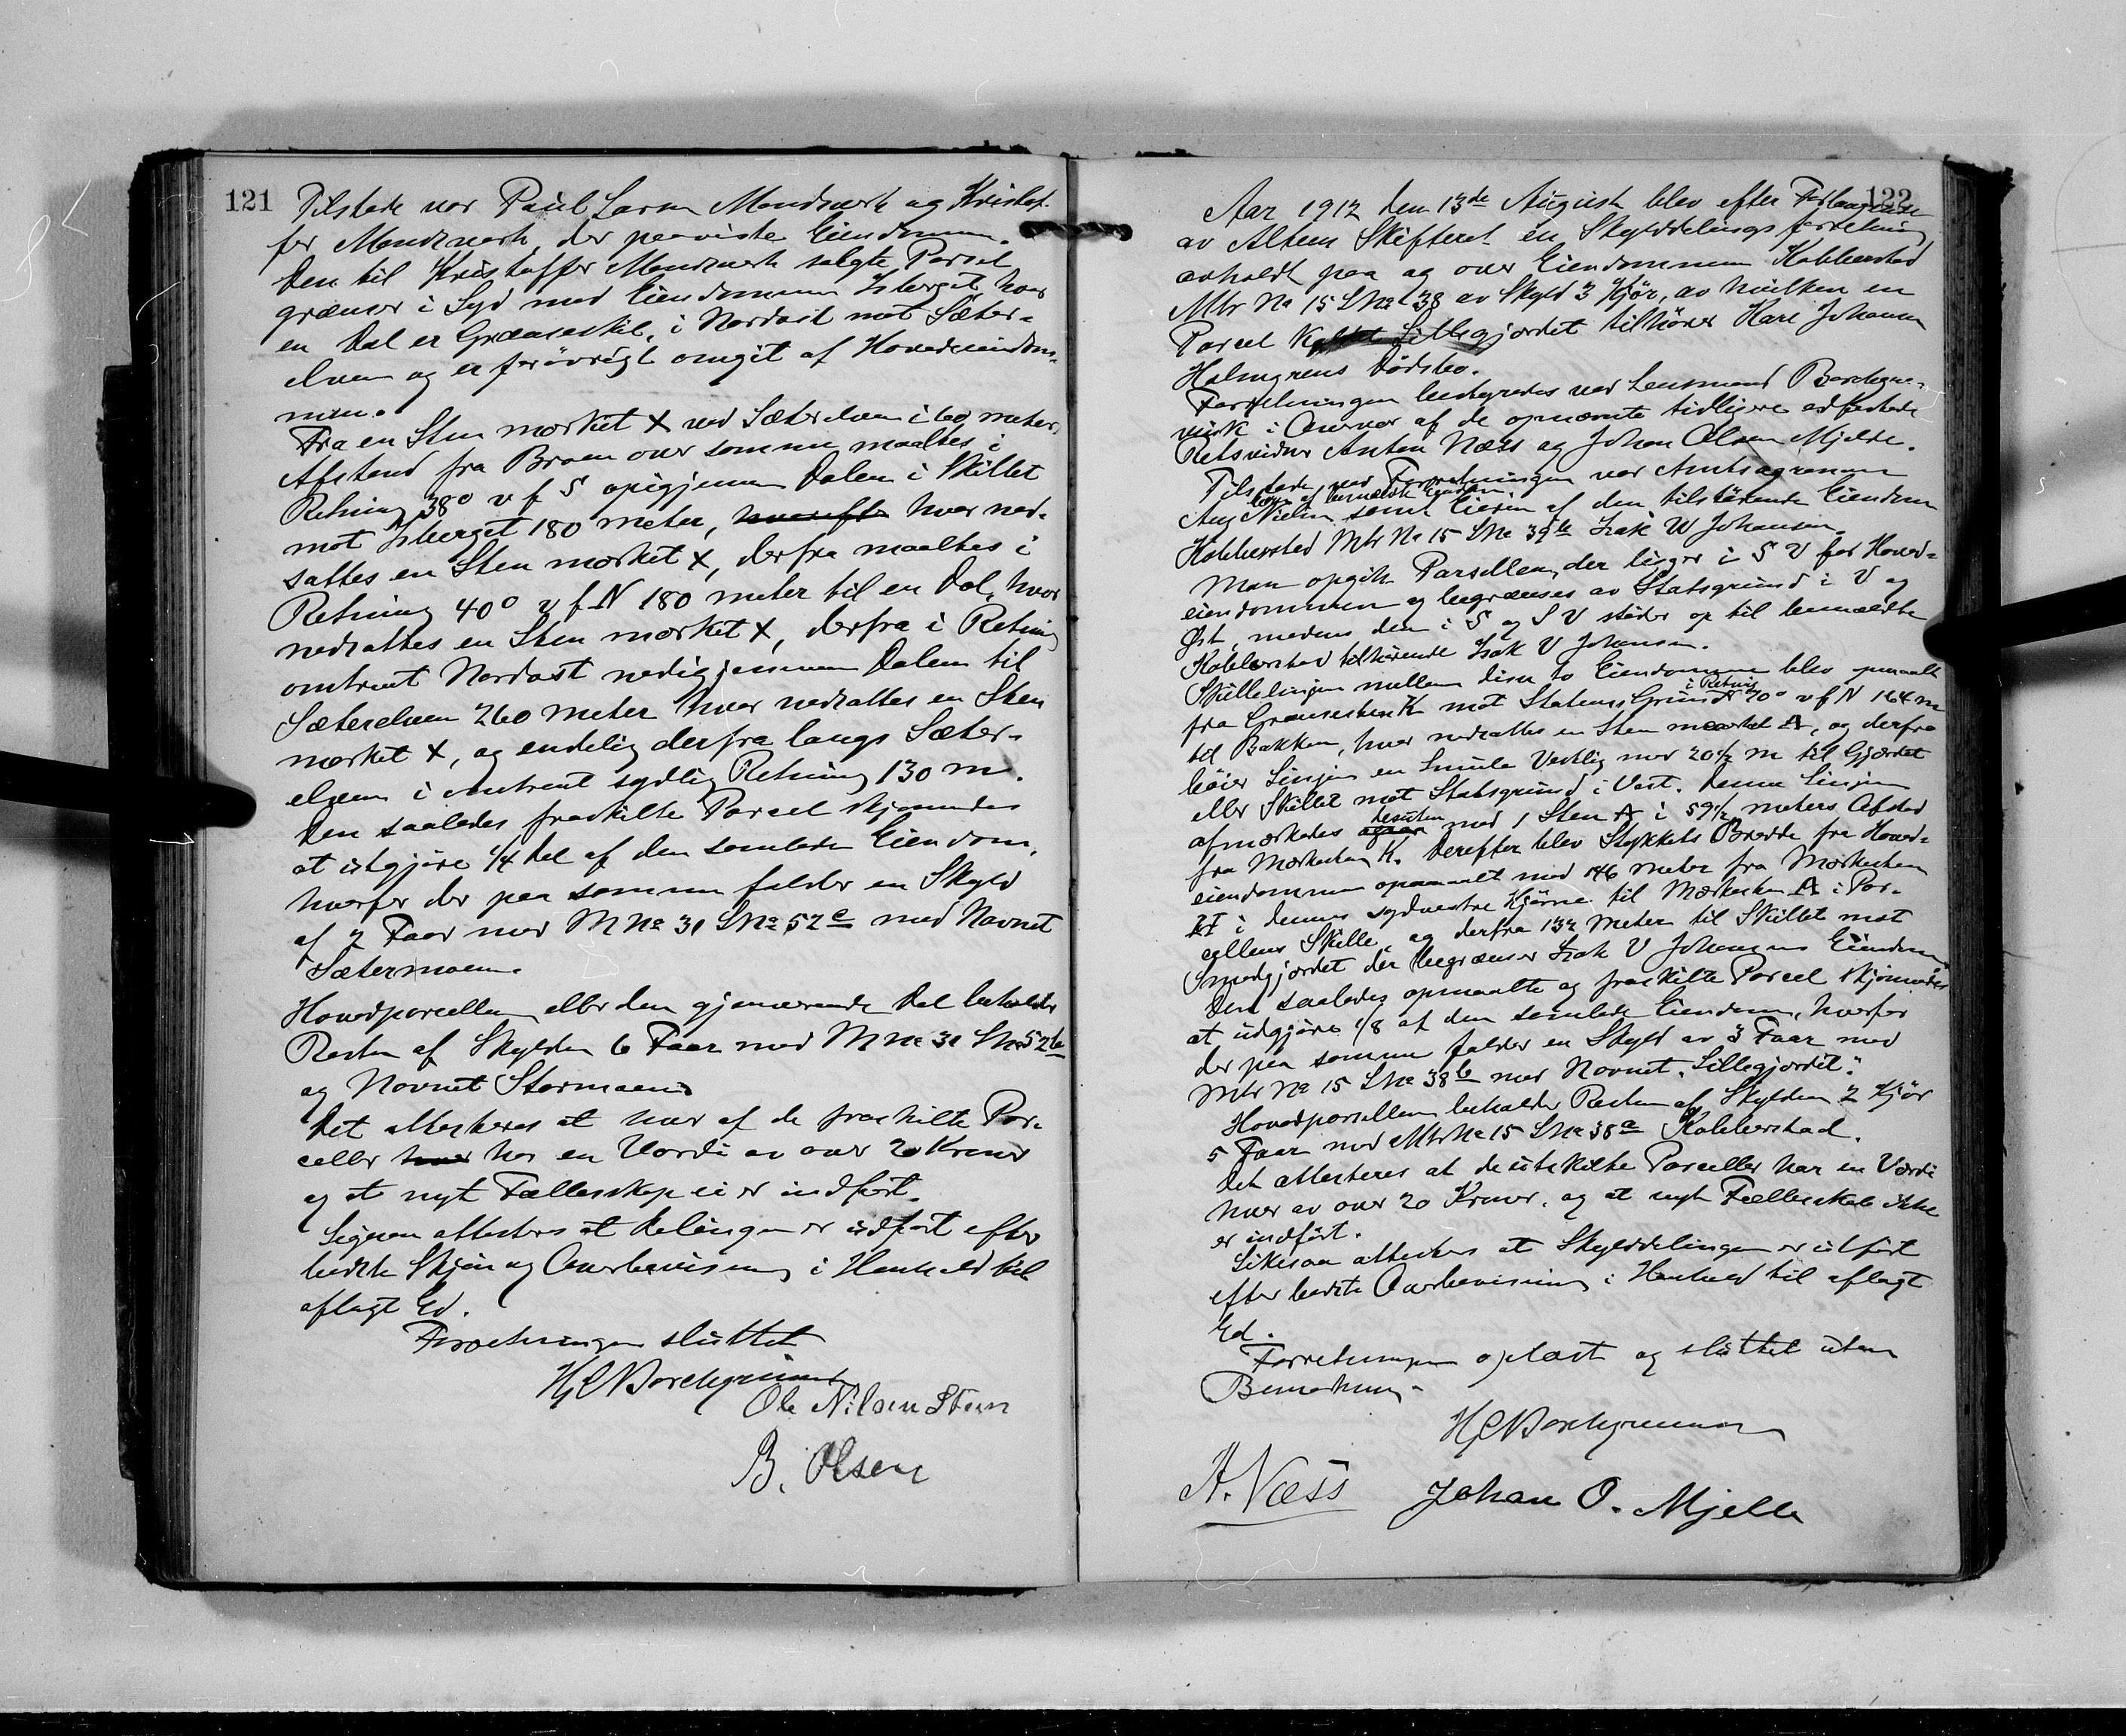 121
Tilstede var Paul Larsen Mandsverk og Kristof-
fer Mandsverk, der paaviste Eiendommen.
Den til Kristoffer Mandsverk solgte Parsel
grænser i Syd mod Eiendommen Isberget, hvor
en Dal er Grænseskil, i Nordost mot Sæter-
elven og er forövrigt omgit af Hovedeiendom-
men.
Fra en Sten mærket X ved Sæterelven i 60 meters
Afstand fra Broen over samme maaltes i
Retning 38° v f S opigjennem Dalen i Skillet
mot Isberget 180 meter, hvorefter hvor ned-
sattes en Sten mærket X, derfra maaltes i
Retning 40° v f N 180 meter til en Dal, hvor
nedsattes en Sten mærket X, derfra i Retning
omtrent Nordost nedigjennem Dalen til
Sæterelven 260 meter hvor nedsattes en Sten
mærket X, og endelig derfra langs Sæter-
elven i omtrent sydlig Retning 130 m.
Den saaledes fraskilte Parcel skjønnedes
at utgjøre 1/4 Del af den samlede Eiendom,
hvorfor der paa samme falder en Skyld
af 2 Faar med M No 31 L No 52 c med Navnet
Sætermoen.
Hovedparcellen eller den gjenværende Del beholder
Resten af Skylden 6 Faar med M No 31 L No 52 b
og Navnet Stormoen.
Det attesteres at hver af de fraskilte Par-
celler hver har en Værdi av over 20 Kroner
og at nyt Fællesskap ei er indført.
Ligesaa attesteres at Delingen er udført efter
bedste Skjøn og Overbevisning i Henhold til
aflagt Ed.
Forretningen sluttet
H C Borchgrevink
Ole Nilsen Steen
B. Olsen
122
Aar 1912 den 13de August blev efter Forlangende
av Altens Skifteret en Skylddelingsforretning
avholdt paa og over Eiendommen Kobberstad
Mtr No 15 L No 38 av Skyld 3 Kjör, av hvilken en
Parcel Kaldet Lillegjærdet tilhörer Hans Johansen
Holmgrens Dödsbo.
Forretningen bestyredes ved Lensmand Borchgre-
vink i Overvær af de opnævnte tidligere edfæstede
Retsvidner Anton Næss og Johan Olsen Mjelde.
Tilstede ved Forretningen var Amtsagronom
Aug Nielsen, samt Eieren af den tilstötende Eiendom
Kobberstad Mtr No 15 L No 39 b Isak W Johansen.
Man opgik Parsellen, der ligger i S V for Hoved-
eiendommen og begrænses av Statsgrund i V og
Øst, medens den i S og S V stöder op til bemældte
Kobberstad tilhørende Isak V Johansen.
Skillelinjen mellem disse to Eiendomme blev opmaalt
fra Grænsesten K mot Statens Grund i Retning 70° v f N 164 m
til Bakken, hvor nedsattes en Sten mærket A, og derfra
bøier Linjen en Smule Vestlig med 20 1/2 m til Gjærdet
eller Skillet mot Statsgrund i Vest. Denne Linjen
afmærkedes desuten med 1 Sten A i 59 1/2 meters Afstand
fra Mærkesten K. Derefter blev Stykkets Bredde fra Hoved-
eiendommen opmaalt med 146 meter fra Mærkesten
II i dennes sydvestre Hjörne til Mærkesten A i Par-
cellens Skille, og derfra 132 meter til Skillet mot
Smedgjærdet der begrænser Isak V Johansens Eiendom.
Den saaledes opmaalte og fraskilte Parcel skjønnedes
at udgjøre 1/8 af den samlede Eiendom, hvorfor
der paa samme falder en Skyld av 3 Faar med
Mtr No 15 L No 38 b med Navnet „Lillegjærdet".
Hovedparsellen beholder Resten af Skylden 2 Kjør
5 Faar med Mtr No 15 L No 38 a Kobberstad.
Det attesteres at de utskilte Parceller har en Værdi
hver av over 20 Kroner, og at nyt Fællesskab ikke
er indført.
Likesaa attesteres at Skylddelingen er utført
efter bedste Overbevisning i Henhold til aflagt
Ed.
Forretningen oplæst og sluttet uten
Bemærkning.
H C Borchgrevink
A. Næss Johan O. Mjelde